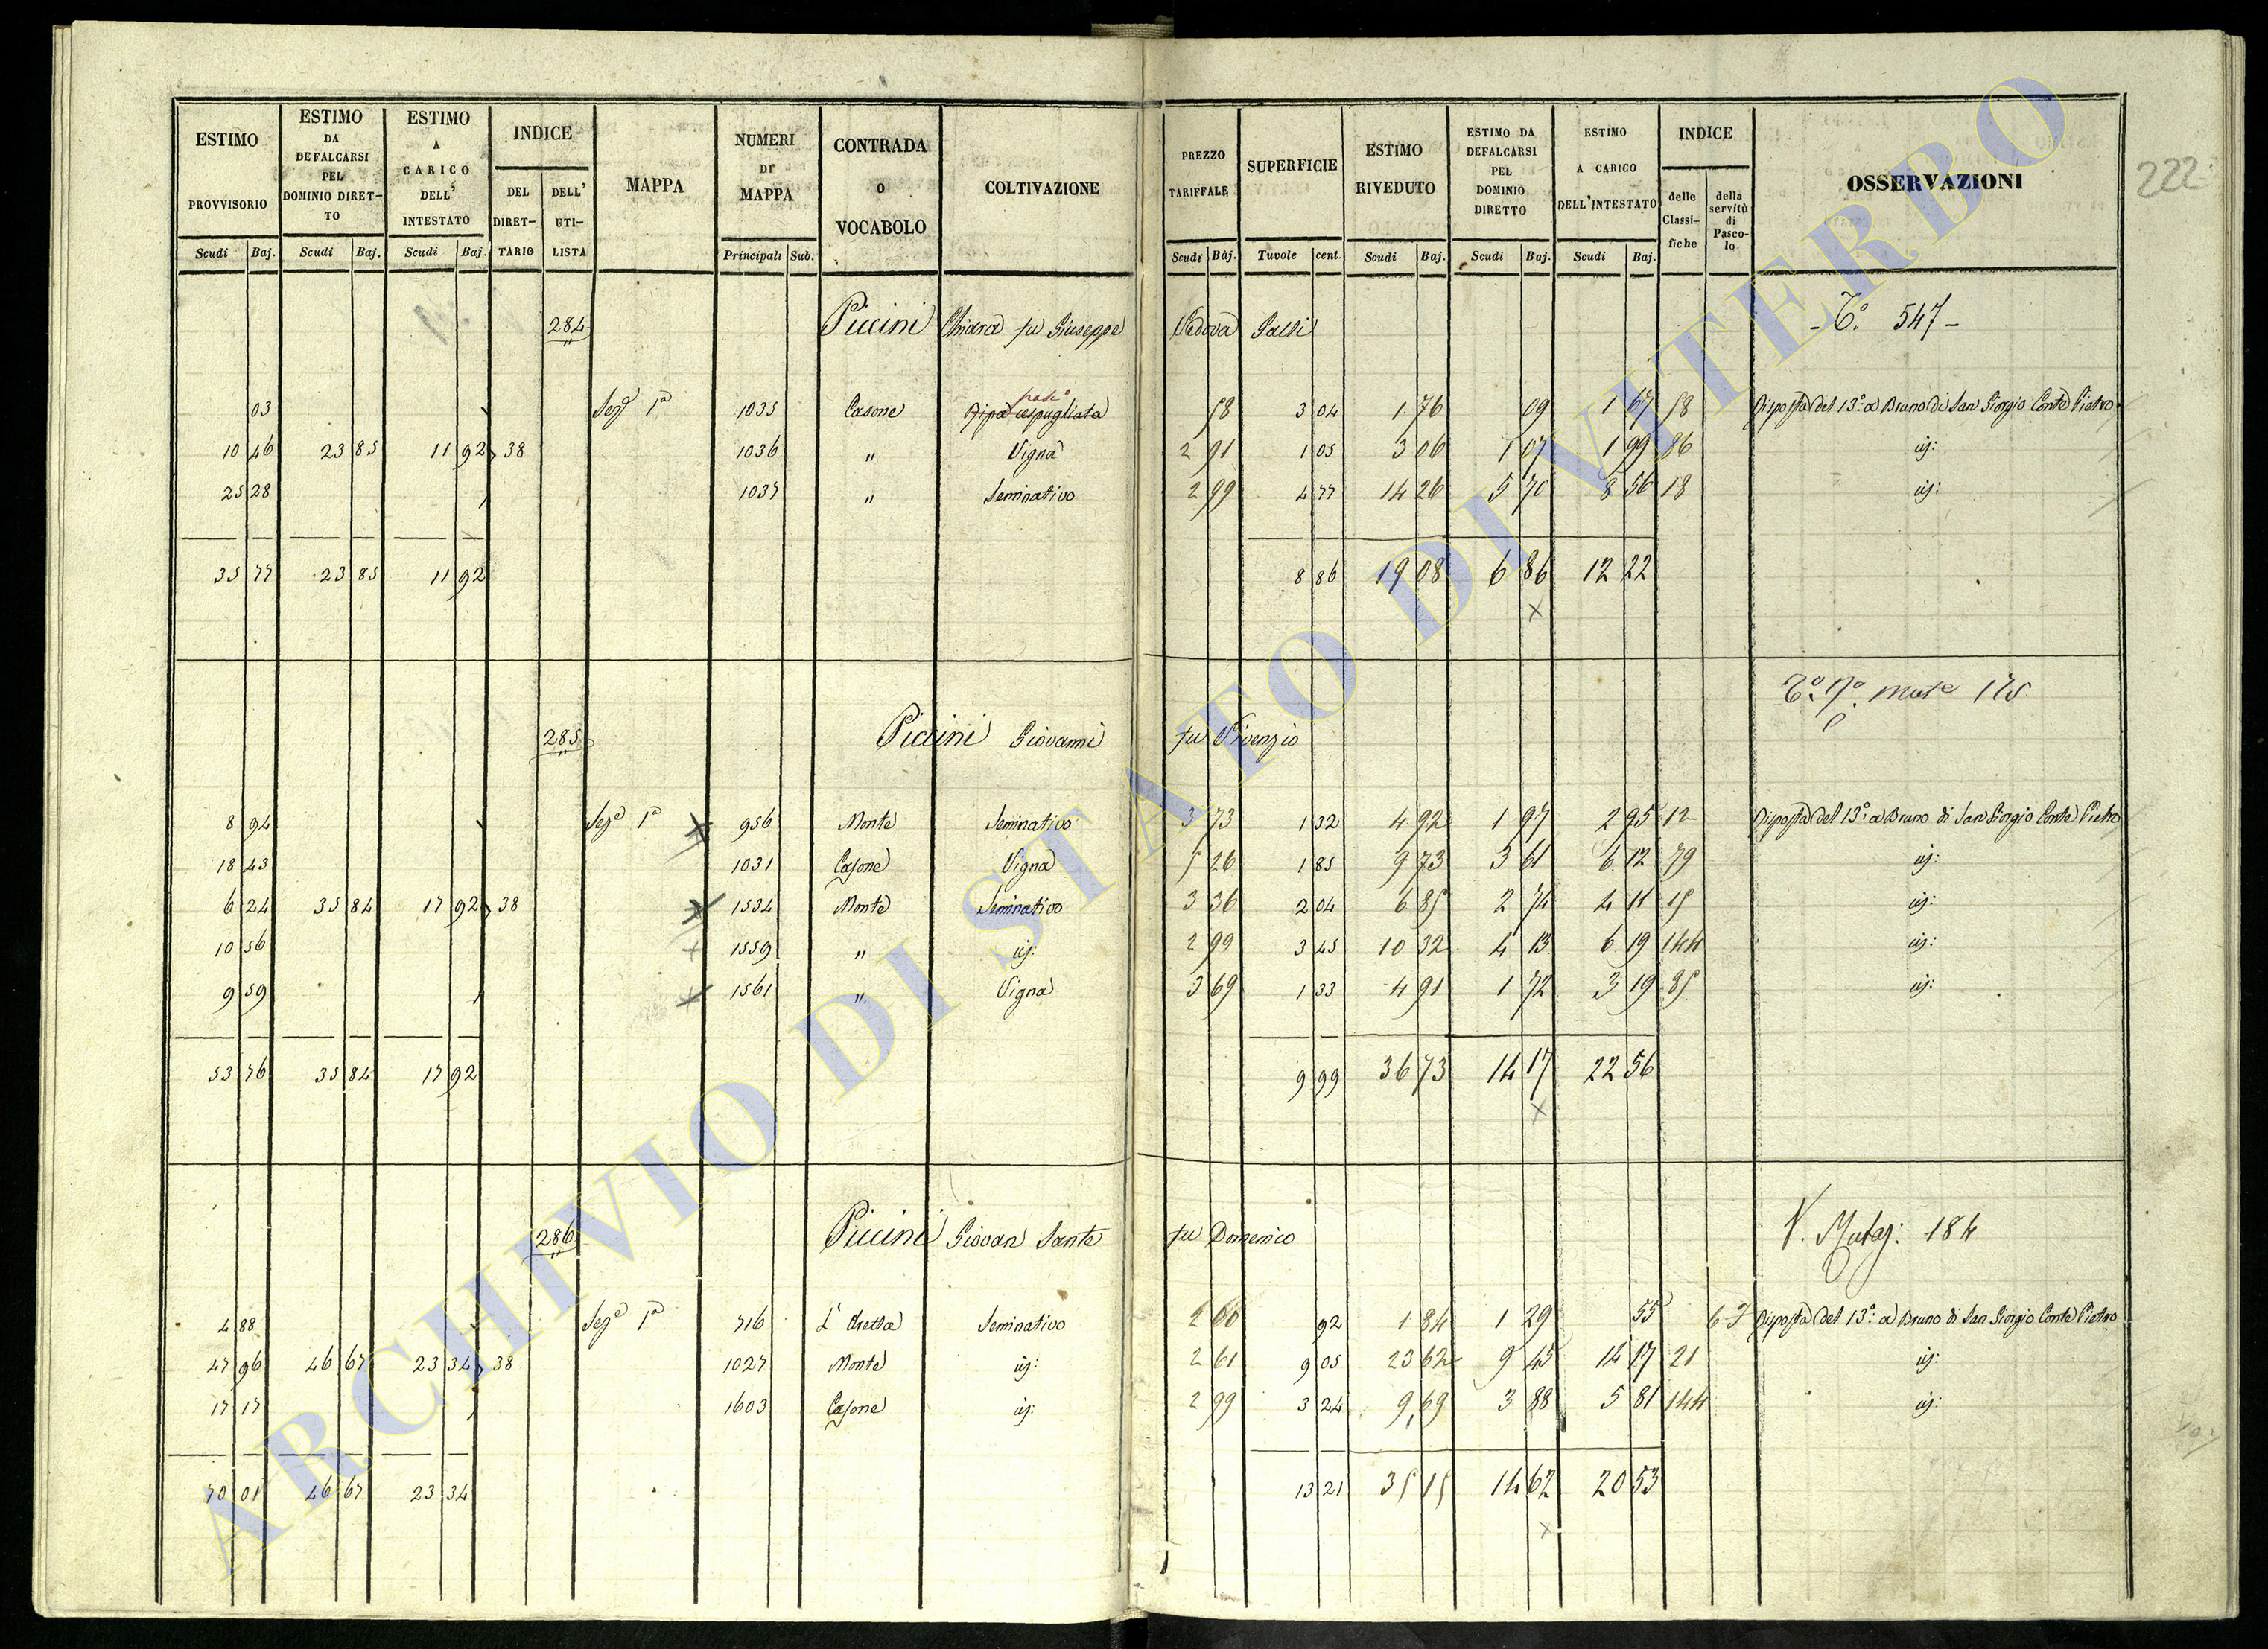 222
ESTIMO PROVVISORIO | ESTIMO DA DEFALCARSI PEL DOMINIO DIRETTO | ESTIMO A CARICO DELL' INTESTATO | INDICE DEL DIRETTARIO | DELL' UTILISTA | MAPPA | NUMERI DI MAPPA | CONTRADA O VOCABOLO | COLTIVAZIONE | PREZZO TARIFFALE | SUPERFICIE | ESTIMO RIVEDUTO | ESTIMO DA DEFALCARSI PEL DOMINIO DIRETTO | ESTIMO A CARICO DELL'INTESTATO | INDICE delle Classifiche | della servitù di Pascolo | OSSERVAZIONI
Scudi Baj. Scudi Baj. Scudi Baj. Principali Sub. Scudi Baj. Tavole cent. Scudi Baj. Scudi Baj. Scudi Baj.
284 Piccini Chiara fu Giuseppe Vedova Galli 547
03 Sez.e 1a 1035 Casone Ripa cespugliata 58 3 04 1 76 09 1 67 58 Risposta del 13.o a Bruno di San Giorgio Conte Pietro
10 46 23 85 11 92 38 1036 " Vigna 2 91 1 05 3 06 1 07 1 99 86 id:
25 28 1037 " Seminativo 2 99 4 77 14 26 5 70 8 56 18 id:
35 77 23 85 11 92 8 86 19 08 6 86 12 22
285 Piccini Giovanni fu Vivenzio
8 94 Sez.e 1a 956 Monte Seminativo 3 73 1 32 4 92 1 97 2 95 12 Risposta del 13.o a Bruno di San Giorgio Conte Pietro
18 43 1031 Casone Vigna 5 26 1 85 9 73 3 61 6 12 79 id:
6 24 35 84 17 92 38 1534 Monte Seminativo 3 36 2 04 6 85 2 74 4 11 15 id:
10 56 1559 " id: 2 99 3 45 10 32 4 13 6 19 144 id:
9 59 1561 " Vigna 3 69 1 33 4 91 1 72 3 19 85 id:
53 76 35 84 17 92 9 99 36 73 14 17 22 56
286 Piccini Giovan Sante fu Domenico V. Mutaz: 184
4 88 Sez.e 1a 716 Seminativo 2 60 92 1 84 1 29 55 Risposta del 13.o a Bruno di San Giorgio Conte Pietro
47 96 46 67 23 34 38 1027 Monte id: 2 61 9 05 23 62 9 45 14 17 21 id:
17 17 1603 Casone id: 2 99 3 24 9 69 3 88 5 81 144 id:
70 01 46 67 23 34 13 21 35 15 14 62 20 53
ARCHIVIO DI STATO DI VITERBO